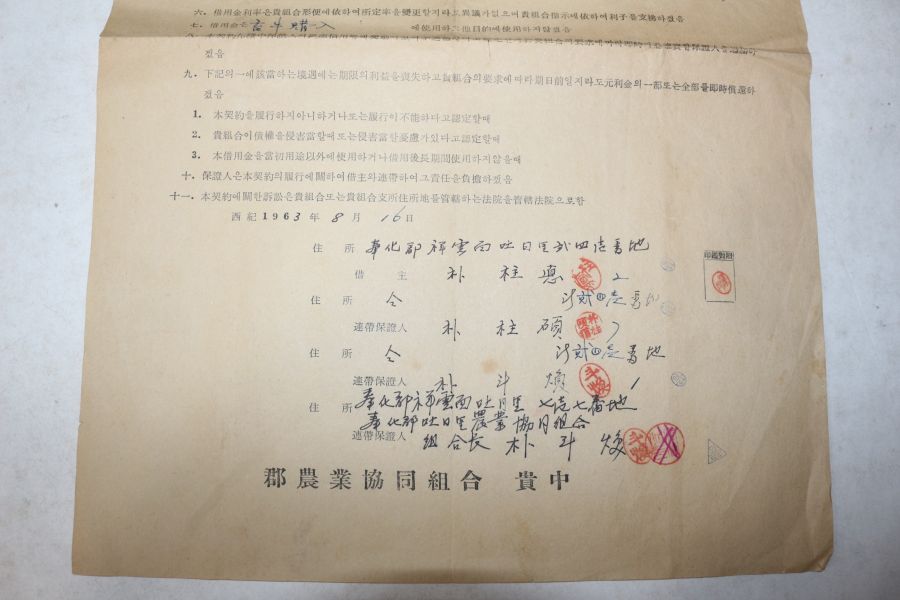 六. 借用金利率은貴組合形便에依하여所定率을變更할지라도異議가없으며貴組合指示에依하여利子를支拂하겠음
七. 借用金은 畜牛購入 에使用하고他目的에使用하지않겠음
하겠음
九. 下記의一에該當하는境遇에는期限의利益을喪失하고貴組合의要求에따라期日前일지라도元利金의一部또는全部를即時償還하
겠음
1. 本契約을履行하지아니하거나또는履行이不能하다고認定할때
2. 貴組合이債權을侵害當할때또는侵害當할憂慮가있다고認定할때
3. 本借用金을當初用途以外에使用하거나借用後長期間使用하지않을때
十. 保證人은本契約의履行에關하여借主와連帶하여그責任을負擔하겠음
十一. 本契約에關한訴訟은貴組合또는貴組合支所住所地를管轄하는法院을管轄法院으로함
西紀 1963 年 8 月 16 日
住所 奉化郡 祥雲面 吐日里 弍四壱番地
借主 朴柱惠
住所 仝 弍四壱番地
連帶保證人 朴柱碩
住所 仝 弍四壱番地
連帶保證人 朴斗煥
住所 奉化郡祥雲面吐日里 七壱七番地
奉化郡吐日里農業協同組合
連帶保證人 組合長 朴斗煥
郡農業協同組合 貴中